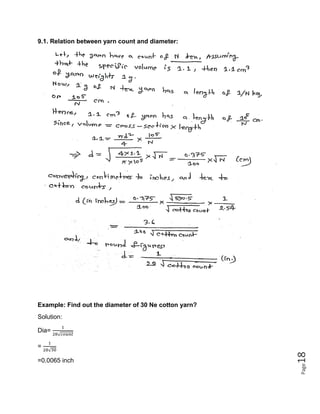 9.1. Relation between yarn count and diameter:
Let, the yarn have a count of N tex, Assuming
that the specific volume is 1.1, then 1.1 cm³
of yarn weights 1g.
Now, 1 g of N tex yarn has a length of 1/N kg,
or 10⁵/N cm.
Hence, 1.1 cm³ of yarn has a length of 10⁵/N cm.
Since, volume = cross-section × length
1.1 = πd²/4 × 10⁵/N
⇒ d = √(4×1.1/π×10⁵) × √N = 0.375/100 × √N (cm)
Converting, centimetres to inches, and tex to
cotton counts,
d (in inches) = 0.375/100 × √590.5/√cotton count × 1/2.54
= 3.6/100 √cotton count
and, to round figures
d = 1/28 √cotton count (in.)
Example: Find out the diameter of 30 Ne cotton yarn?
Solution:
Dia= 1/28√count
= 1/28√30
=0.0065 inch
Page18